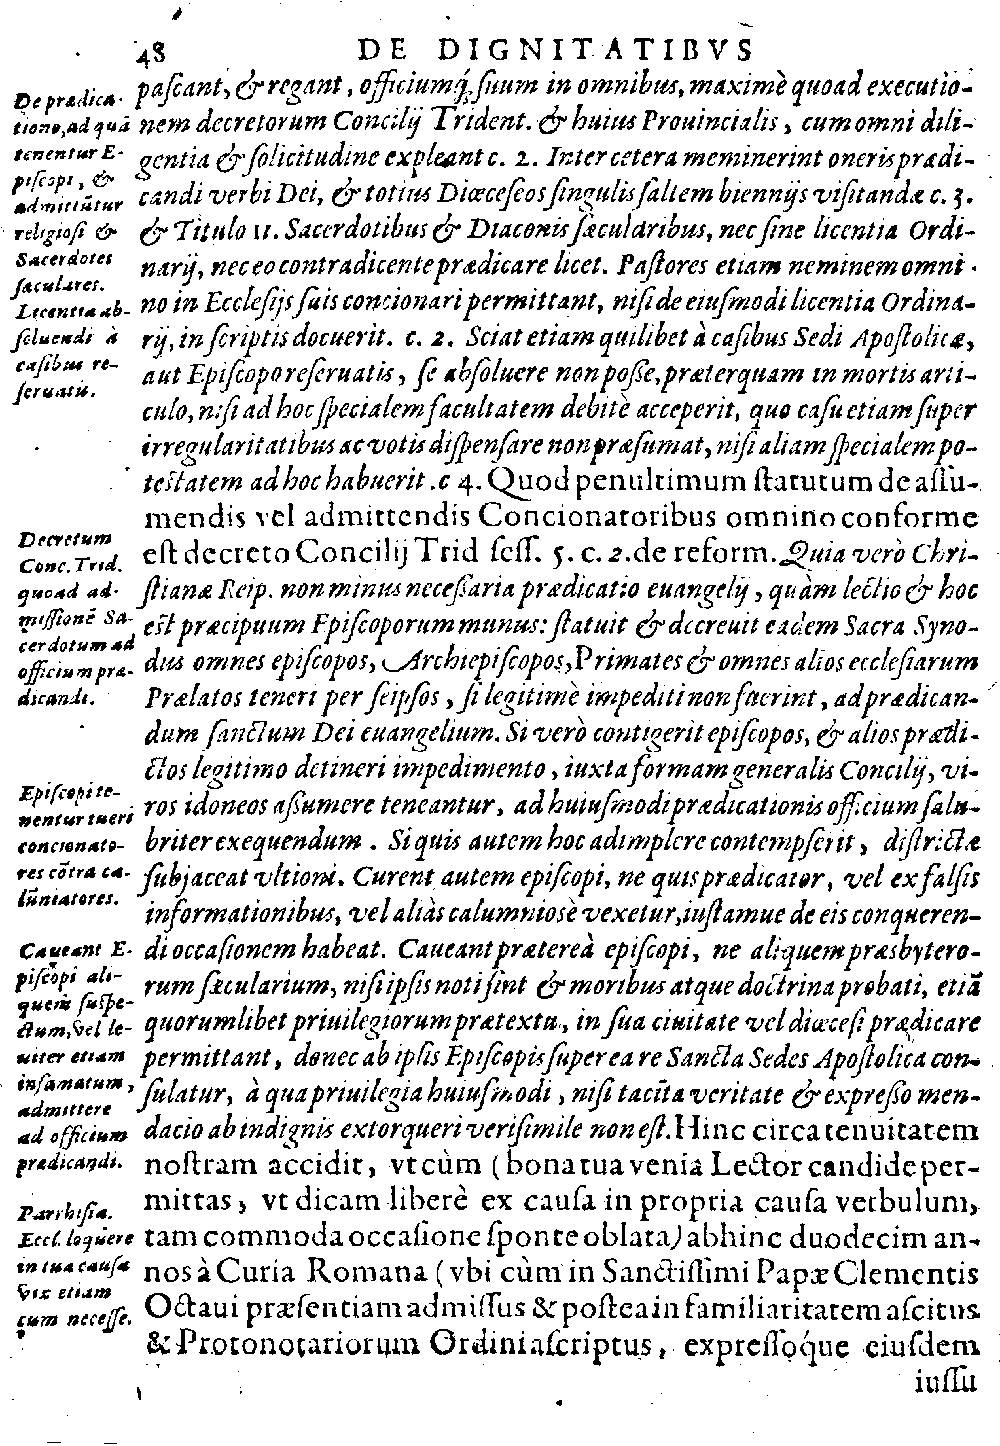 48 DE DIGNITATIBVS
paſcant, & regant, officiumq́; ſuum in omnibus, maximè quoad executio-
nem decretorum Concilij Trident. & huius Prouincialis, cum omni dili-
gentia & ſolicitudine expleant c. 2. Inter cetera meminerint oneris prædi-
candi verbi Dei, & totius Diœceſeos ſingulis ſaltem biennijs viſitandæ c. 3.
& Titulo 11. Sacerdotibus & Diaconis ſæcularibus, nec ſine licentia Ordi-
narij, nec eo contradicente prædicare licet. Paſtores etiam neminem omni-
no in Eccleſijs ſuis concionari permittant, niſi de eiuſmodi licentia Ordina-
rij, in ſcriptis docuerit. c. 2. Sciat etiam quilibet à caſibus Sedi Apoſtolicæ,
aut Epiſcopo reſeruatis, ſe abſoluere non poſſe, præterquam in mortis arti-
culo, niſi ad hoc ſpecialem facultatem debitè acceperit, quo caſu etiam ſuper
irregularitatibus ac votis diſpenſare non præſumat, niſi aliam ſpecialem po-
teſtatem ad hoc habuerit. c 4. Quod penultimum ſtatutum de aſſu-
mendis vel admittendis Concionatoribus omnino conforme
eſt decreto Concilij Trid ſeſſ. 5. c. 2. de reform. Quia verò Chri-
ſtianæ Reip. non minus neceſſaria prædicatio euangelij, quàm lectio & hoc
eſt præcipuum Epiſcoporum munus: ſtatuit & decreuit eadem Sacra Syno-
dus omnes epiſcopos, Archiepiſcopos, Primates & omnes alios eccleſiarum
Prælatos teneri per ſeipſos, ſi legitimè impediti non fuerint, ad prædican-
dum ſanctum Dei euangelium. Si verò contigerit epiſcopos, & alios prædi-
ctos legitimo detineri impedimento, iuxta formam generalis Concilij, vi-
ros idoneos aſſumere teneantur, ad huiuſmodi prædicationis officium ſalu-
briter exequendum. Si quis autem hoc adimplere contempſerit, diſtrictæ
ſubjaceat vltioni. Curent autem epiſcopi, ne quis prædicator, vel ex falſis
informationibus, vel aliàs calumnioſè vexetur, iuſtamue de eis conqueren-
di occaſionem habeat. Caueant prætereà epiſcopi, ne aliquem præsbytero-
rum ſæcularium, niſi ipſis noti ſint & moribus atque doctrina probati, etiā
quorumlibet priuilegiorum prætextu, in ſua ciuitate vel diœceſi prædicare
permittant, donec ab ipſis Epiſcopis ſuper ea re Sancta Sedes Apoſtolica con-
ſulatur, à qua priuilegia huiuſmodi, niſi tacita veritate & expreſſo men-
dacio ab indignis extorqueri veriſimile non eſt. Hinc circa tenuitatem
noſtram accidit, vt cùm (bona tua venia Lector candide per-
mittas, vt dicam liberè ex cauſa in propria cauſa verbulum,
tam commoda occaſione ſponte oblata) abhinc duodecim an-
nos à Curia Romana (vbi cùm in Sanctiſſimi Papæ Clementis
Octaui præſentiam admiſſus & poſtea in familiaritatem aſcitus
& Protonotariorum Ordini aſcriptus, expreſſóque eiuſdem
iuſſu
De prædica-
tione, ad quā
tenentur E-
piſcopi, &
admittūtur
religioſi &
Sacerdotes
ſæculares.
Licentia ab-
ſoluendi à
caſibus re-
ſeruatis.
Decretum
Conc. Trid.
quoad ad-
miſſionē Sa-
cerdotum ad
officium præ-
dicandi.
Epiſcopi te-
nentur tueri
concionato-
res cōtra ca-
lūniatores.
Caueant E-
piſcopi ali-
quem ſuſpe-
ctum, vel le-
uiter etiam
infamatum,
admittere
ad officium
prædicandi.
Parrhiſia.
Eccl. loquere
in tua cauſa
vix etiam
cum neceſſe.